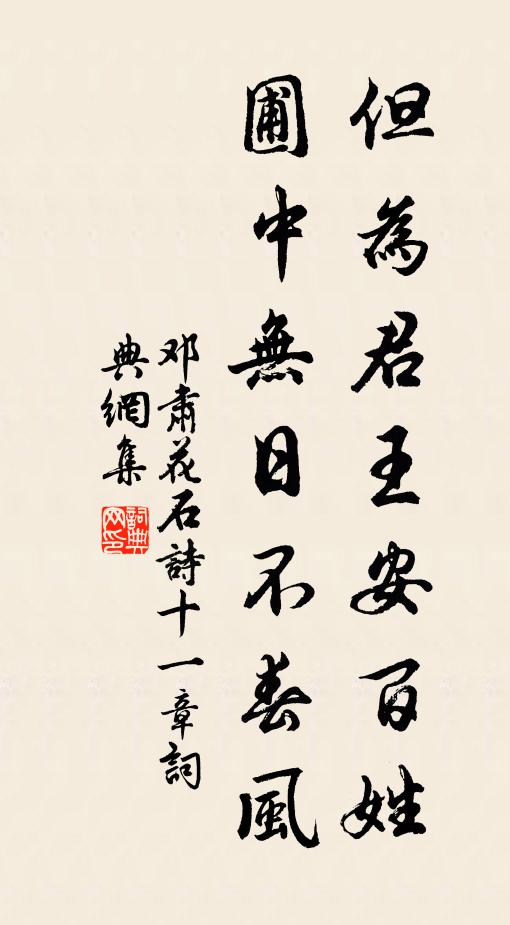 但為君王安百姓
圃中無日不春風
邓肅花石詩十一章詞
典網集
詞典网印